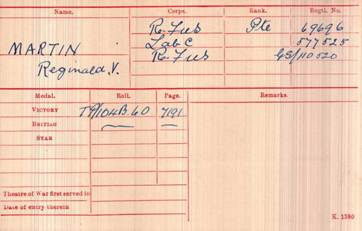 Name. Corps. Rank. Regtl. No.
R. Fus Pte 69696
MARTIN Lab C 577525
Reginald. V. R. Fus GS/110520
Medal. Roll. Page. Remarks.
VICTORY TP/104B.60 7191
BRITISH
STAR
Theatre of War first served in
Date of entry therein
K. 1380